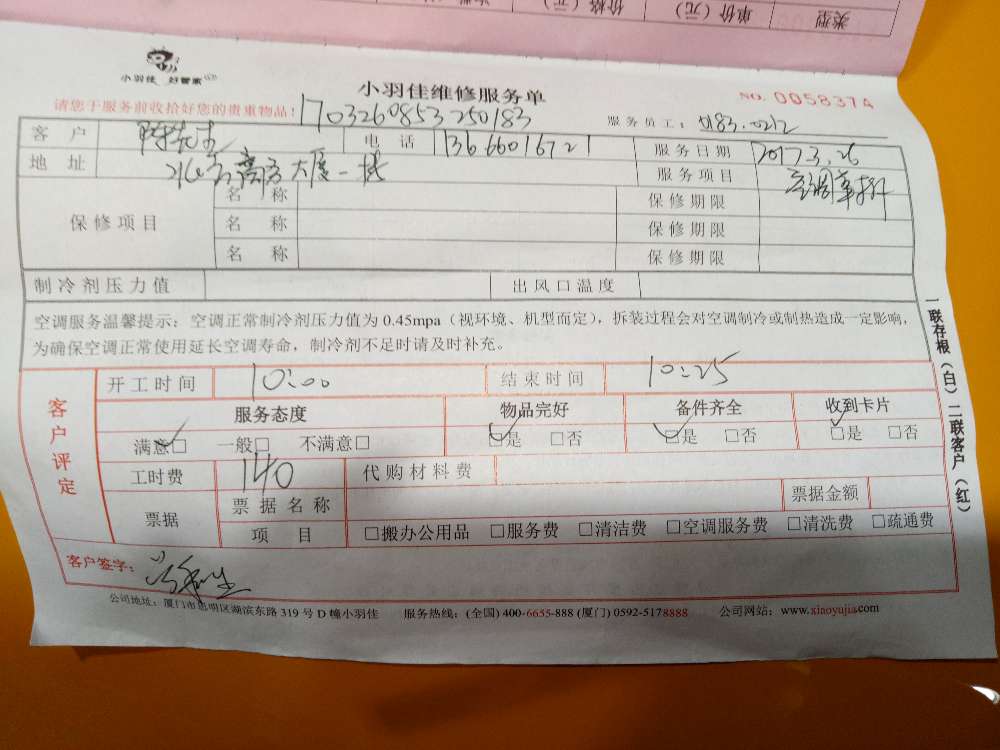 类型 单价（元） 价格（元）
小羽佳 好管家
小羽佳维修服务单
NO. 0058374
请您于服务前收拾好您的贵重物品！ 1703260853250183
服务员工： 0183.0212
客户 陈先生 电话 13666016721 服务日期 2017.3.26
地址 大厦一楼 服务项目 空调单拆
保修项目 名称 保修期限
名称 保修期限
名称 保修期限
制冷剂压力值 出风口温度
空调服务温馨提示：空调正常制冷剂压力值为 0.45mpa（视环境、机型而定），拆装过程会对空调制冷或制热造成一定影响，
为确保空调正常使用延长空调寿命，制冷剂不足时请及时补充。
一联存根（白）二联客户（红）
客户评定
开工时间 10:00 结束时间 10:25
服务态度 物品完好 备件齐全 收到卡片
满意□ 一般□ 不满意□ □是 □否 □是 □否 □是 □否
工时费 140 代购材料费
票据 票据名称 票据金额
项目 □搬办公用品 □服务费 □清洁费 □空调服务费 □清洗费 □疏通费
客户签字：
公司地址：厦门市思明区湖滨东路 319 号 D 幢小羽佳 服务热线：(全国) 400-6655-888 (厦门) 0592-5178888 公司网站：www.xiaoyujia.com